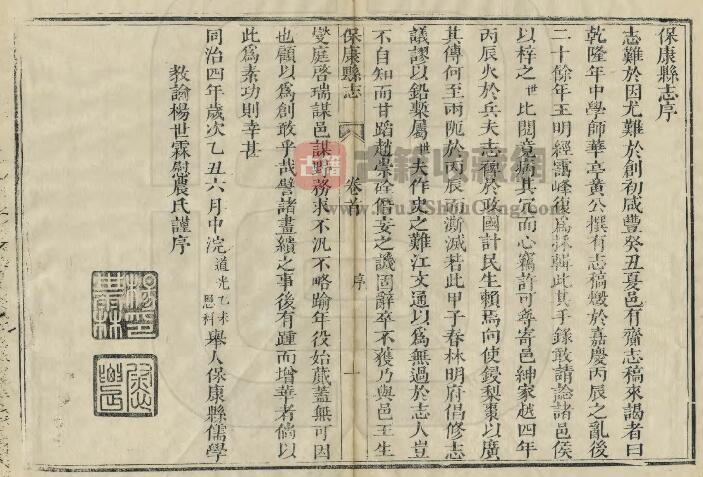 保康縣志序
志難於因尤難於創初咸豐癸丑夏邑有齋志稿來謁者曰
乾隆年中學師華亭黃公撰有志稿燬於嘉慶丙辰之亂後
二十餘年王明經靄峰復為採輯此其手錄敢請諗諸邑侯
以梓之世比閱竟病其冗而心竊許可尋寄邑紳家越四年
丙辰火於兵夫志傳於政國計民生賴焉向使鋟梨棗以廣
其傳何至兩阨於丙辰而澌滅若此甲子春林明府倡修志
議謬以鉛槧屬世夫作史之難江文通以為無過於志人豈
不自知而甘蹈趙崇詅僭妄之譏固辭卒不獲乃與邑王生
保康縣志
卷首
序
一
燮庭啓瑞謀邑謀野務求不汎不略踰年役始蕆蓋無可因
也顧以為創敢乎哉譬諸畫繢之事後有踵而增華者倘以
此為素功則幸甚
同治四年歲次乙丑六月中浣道光乙未恩科舉人保康縣儒學
教諭楊世霖慰農氏謹序
古籍
www.GuJiShuCang.com